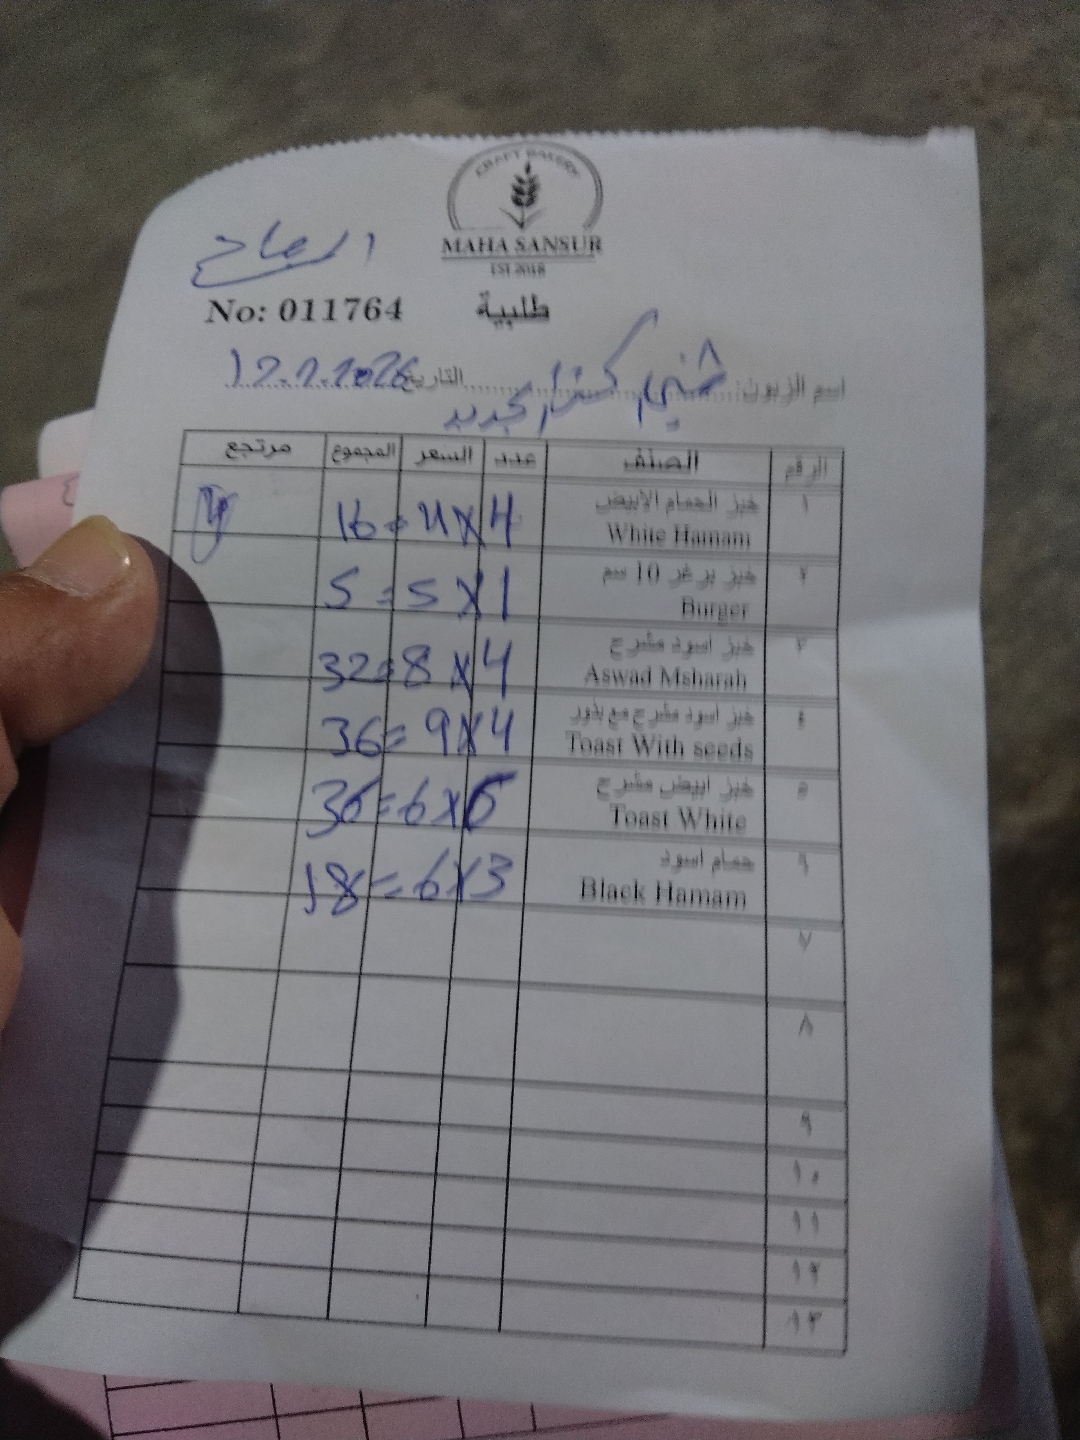 CRAFT BAKERY
MAHA SANSUR
EST 2018
No: 011764 طلبية
اسم الزبون: التاريخ
جديد
الرقم الصنف عدد السعر المجموع مرتجع
١ خبز الحمام الابيض White Hamam 4 x 4 = 16
٢ خبز برغر 10 سم Burger 1 x 5 = 5
٣ خبز اسود مشرح Aswad Msharah 4 x 8 = 32
٤ خبز اسود مشرح مع بذور Toast With seeds 4 x 9 = 36
٥ خبز ابيض مشرح Toast White 6 x 6 = 36
٦ حمام اسود Black Hamam 3 x 6 = 18
٧
٨
٩
١٠
١١
١٢
١٣